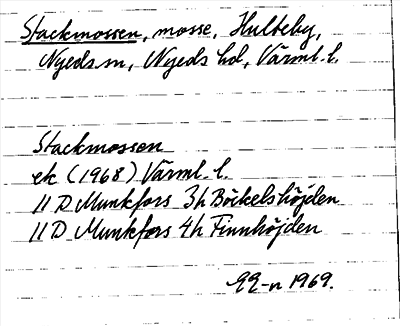 Stackmossen, mosse, Hulteby,
Nyeds sn, Nyeds hd, Värml. l.
Stackmossen
ek (1968) Värml. l.
11 D Munkfors 3h Böckelshöjden
11 D Munkfors 4h Finnhöjden
1969.